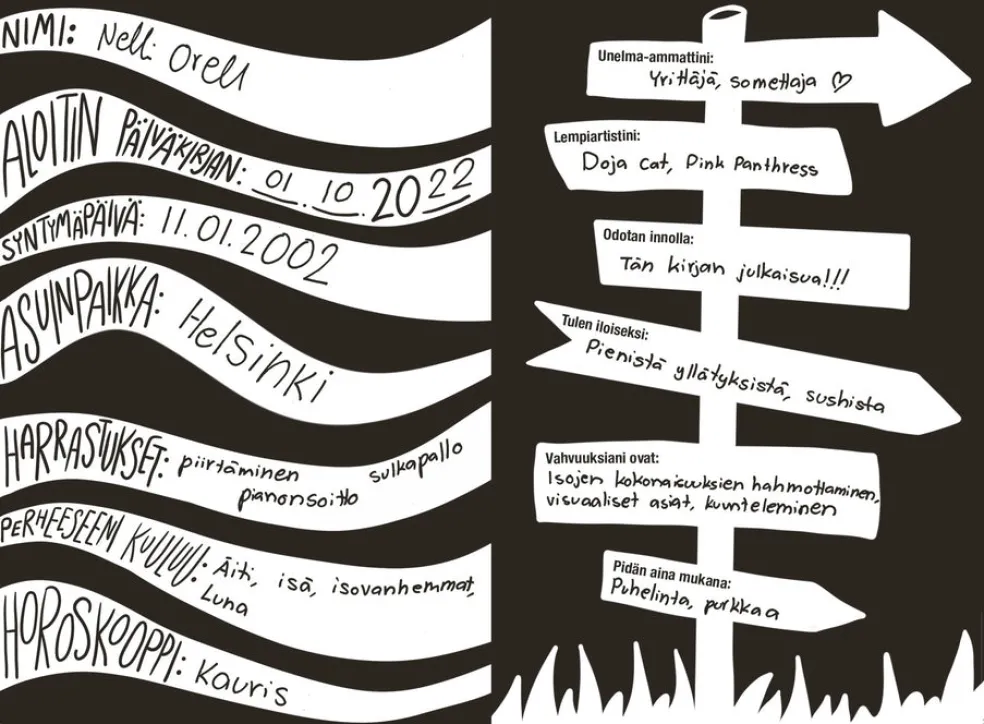 NIMI: Nelli Orell
ALOITIN PÄIVÄKIRJAN: 01.10.2022
SYNTYMÄPÄIVÄ: 11.01.2002
ASUINPAIKKA: Helsinki
HARRASTUKSET: piirtäminen sulkapallo
pianonsoitto
PERHEESEENI KUULUU: Äiti, isä, isovanhemmat,
Luna
HOROSKOOPPI: Kauris
Unelma-ammattini:
Yrittäjä, somettaja ♡
Lempiartistini:
Doja cat, Pink Panthress
Odotan innolla:
Tän kirjan julkaisua!!!
Tulen iloiseksi:
Pienistä yllätyksistä, sushista
Vahvuuksiani ovat:
Isojen kokonaisuuksien hahmottaminen,
visuaaliset asiat, kuunteleminen
Pidän aina mukana:
Puhelinta, purkkaa